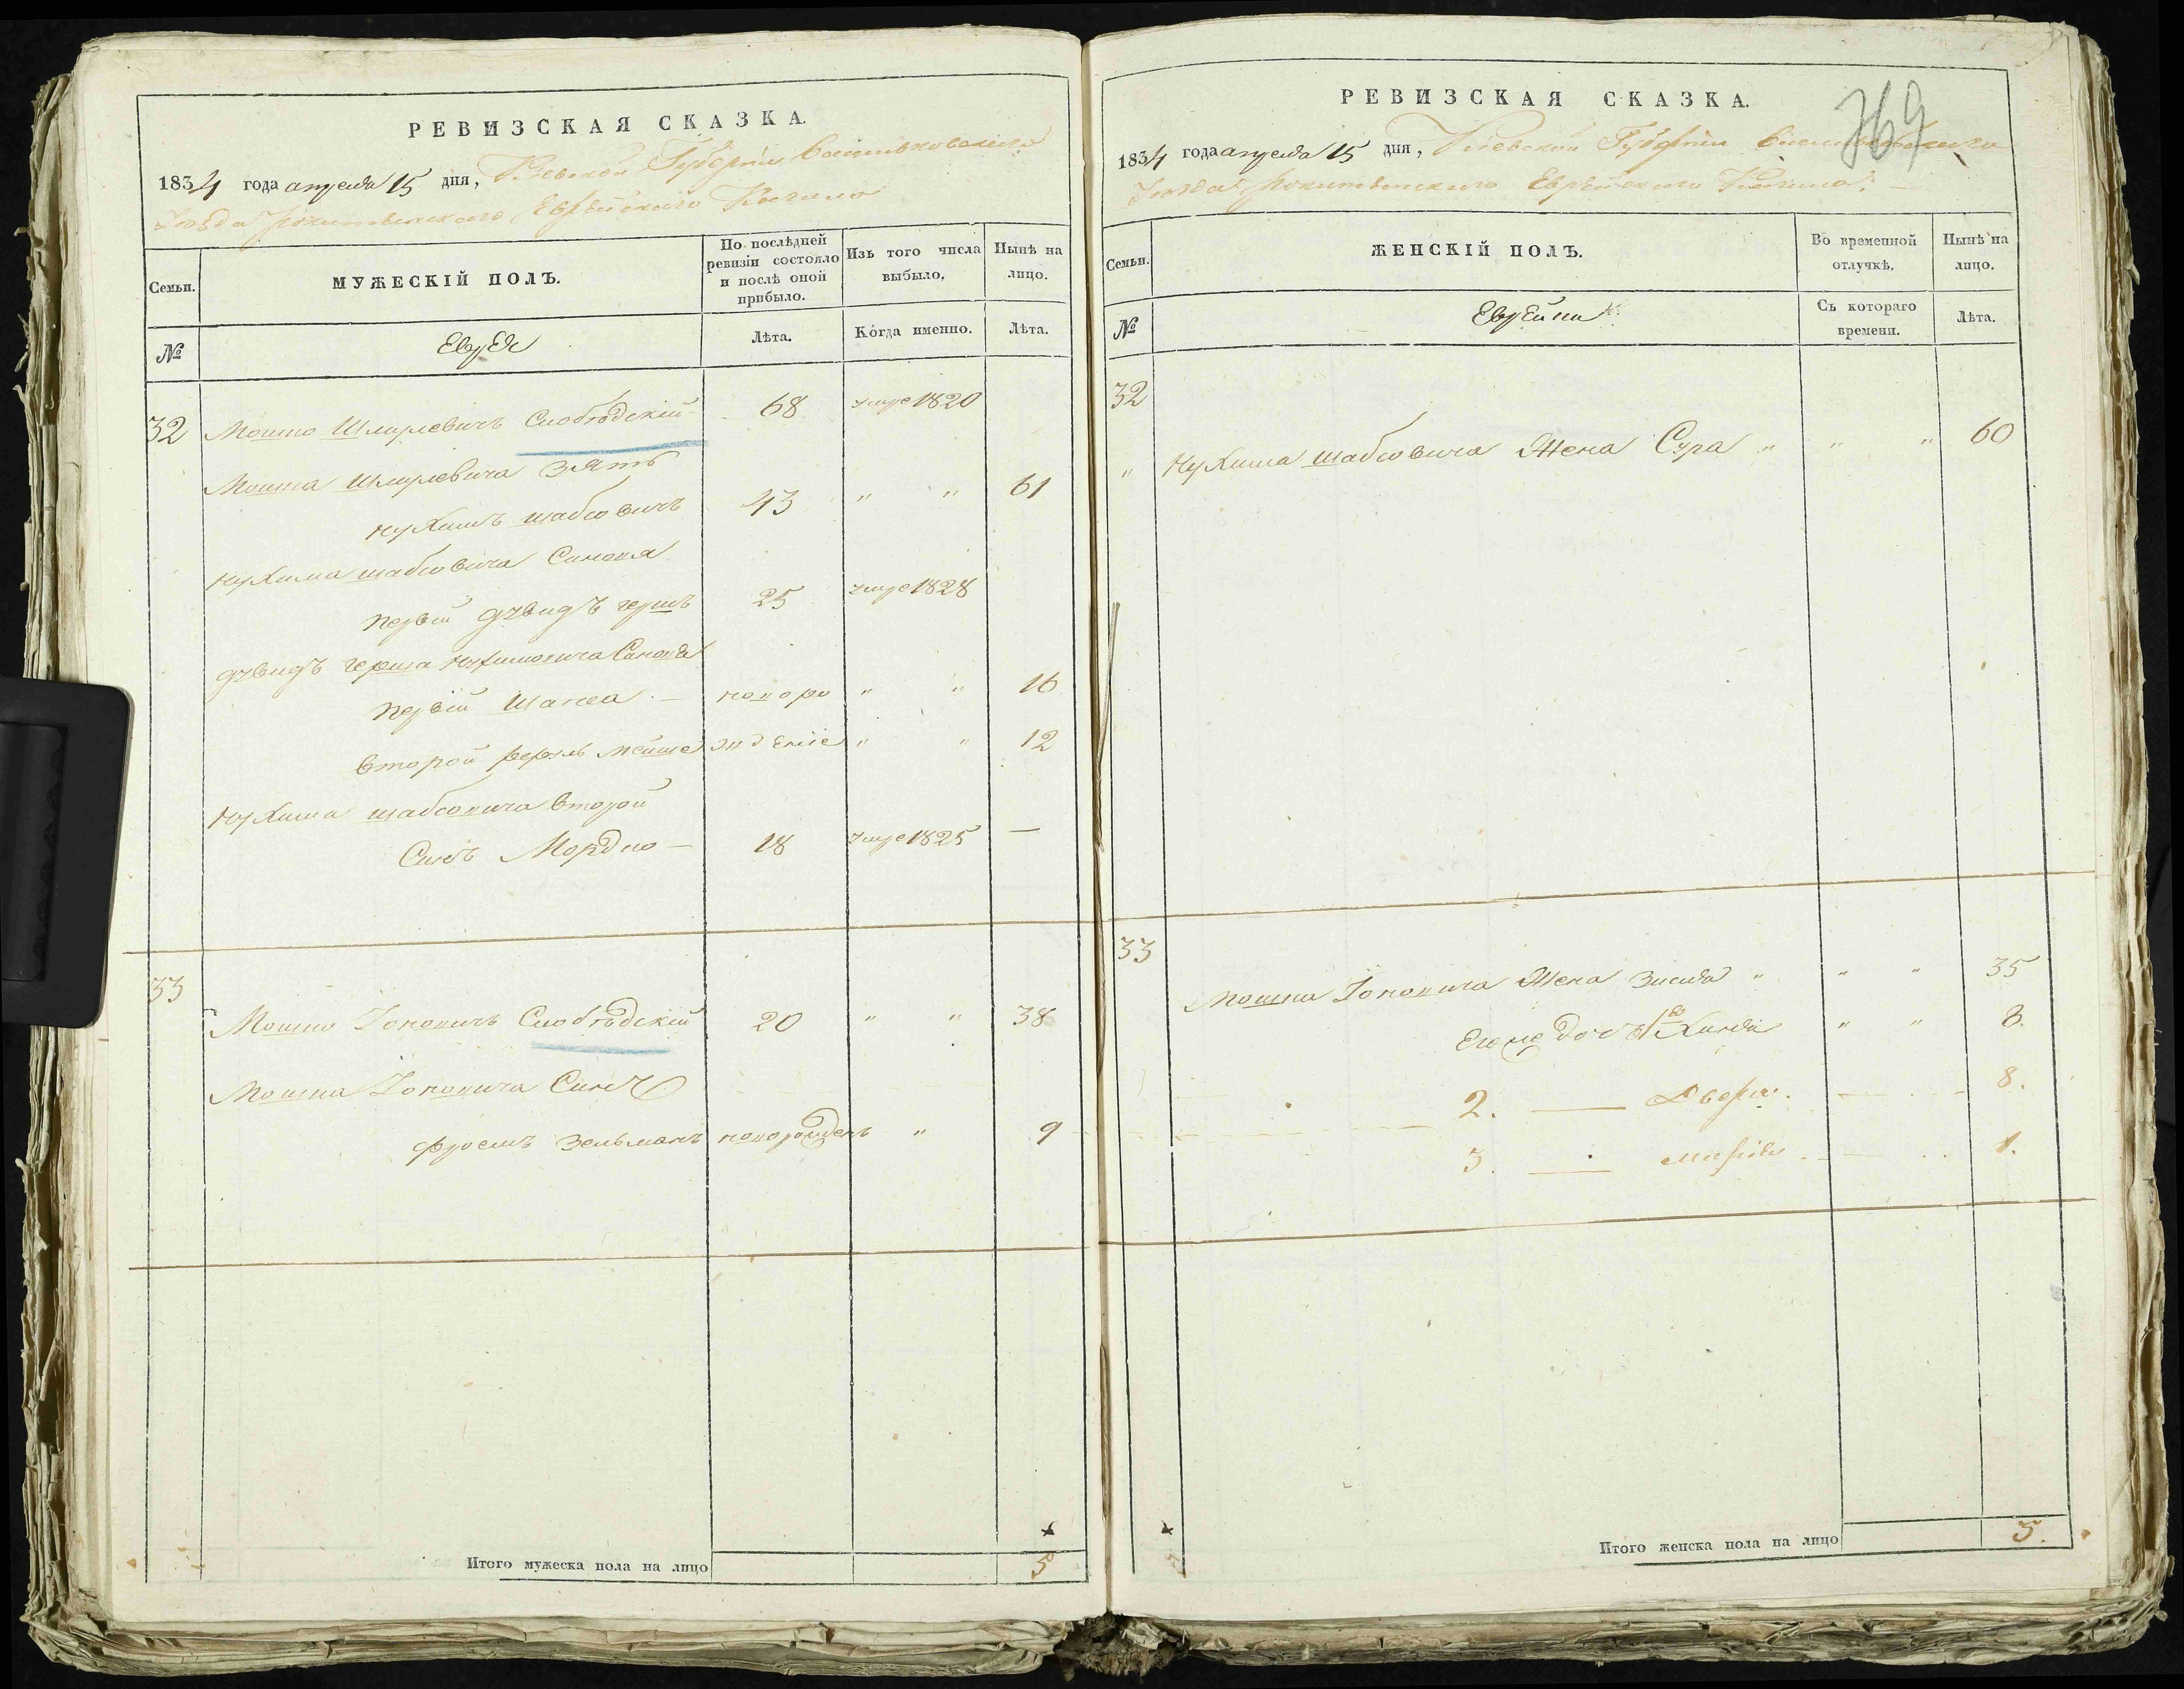 РЕВИЗСКАЯ СКАЗКА.
1834 года апреля 15 дня, Киевской Губернiи Васильковскаго
Уѣзда Рокитянскаго Еврейскаго Кагала
Семьи.
МУЖЕСКIЙ ПОЛЪ.
По послѣдней ревизiи состояло и послѣ оной прибыло.
Изъ того числа выбыло,
Нынѣ на лицо.
№
Евреи
Лѣта.
Когда именно.
Лѣта.
32 Мошко Шмулевичъ Слободскiй 68 умре 1820
Мошка Шмулевича зять
Нухимъ Шабсовичъ 43 " " 61
Нухима Шабсовича Сыновя
первiй Давидъ Гершъ 25 умре 1828
Давидъ Герша Нухимовича Сыновя
первiй Шапса — новоро " " 16
второй Мейше жденiе " " 12
Нухима Шабсовича второй
Сынъ Мордко — 18 умре 1825 —
33
Мошко Іоновичъ Слободскiй 20 " " 38
Мошка Іоновича Сынъ
Фроемъ Зельманъ новорожденъ " 9
Итого мужеска пола на лицо 5
769
РЕВИЗСКАЯ СКАЗКА.
1834 года апреля 15 дня, Киевской Губернiи Васильковскаго
Уѣзда Рокитянскаго Еврейскаго Кагала.
Семьи.
ЖЕНСКIЙ ПОЛЪ.
Во временной отлучкѣ,
Нынѣ на лицо.
№
Еврейки
Съ котораго времени.
Лѣта.
32
" Нухима Шабсовича Жена Сура " " " 60
33
Мошка Іоновича Жена Зисля " " " 35
Его же дочь 1ва " " 8.
2. — Двейра. — 8.
3. — 1.
Итого женска пола на лицо 5.